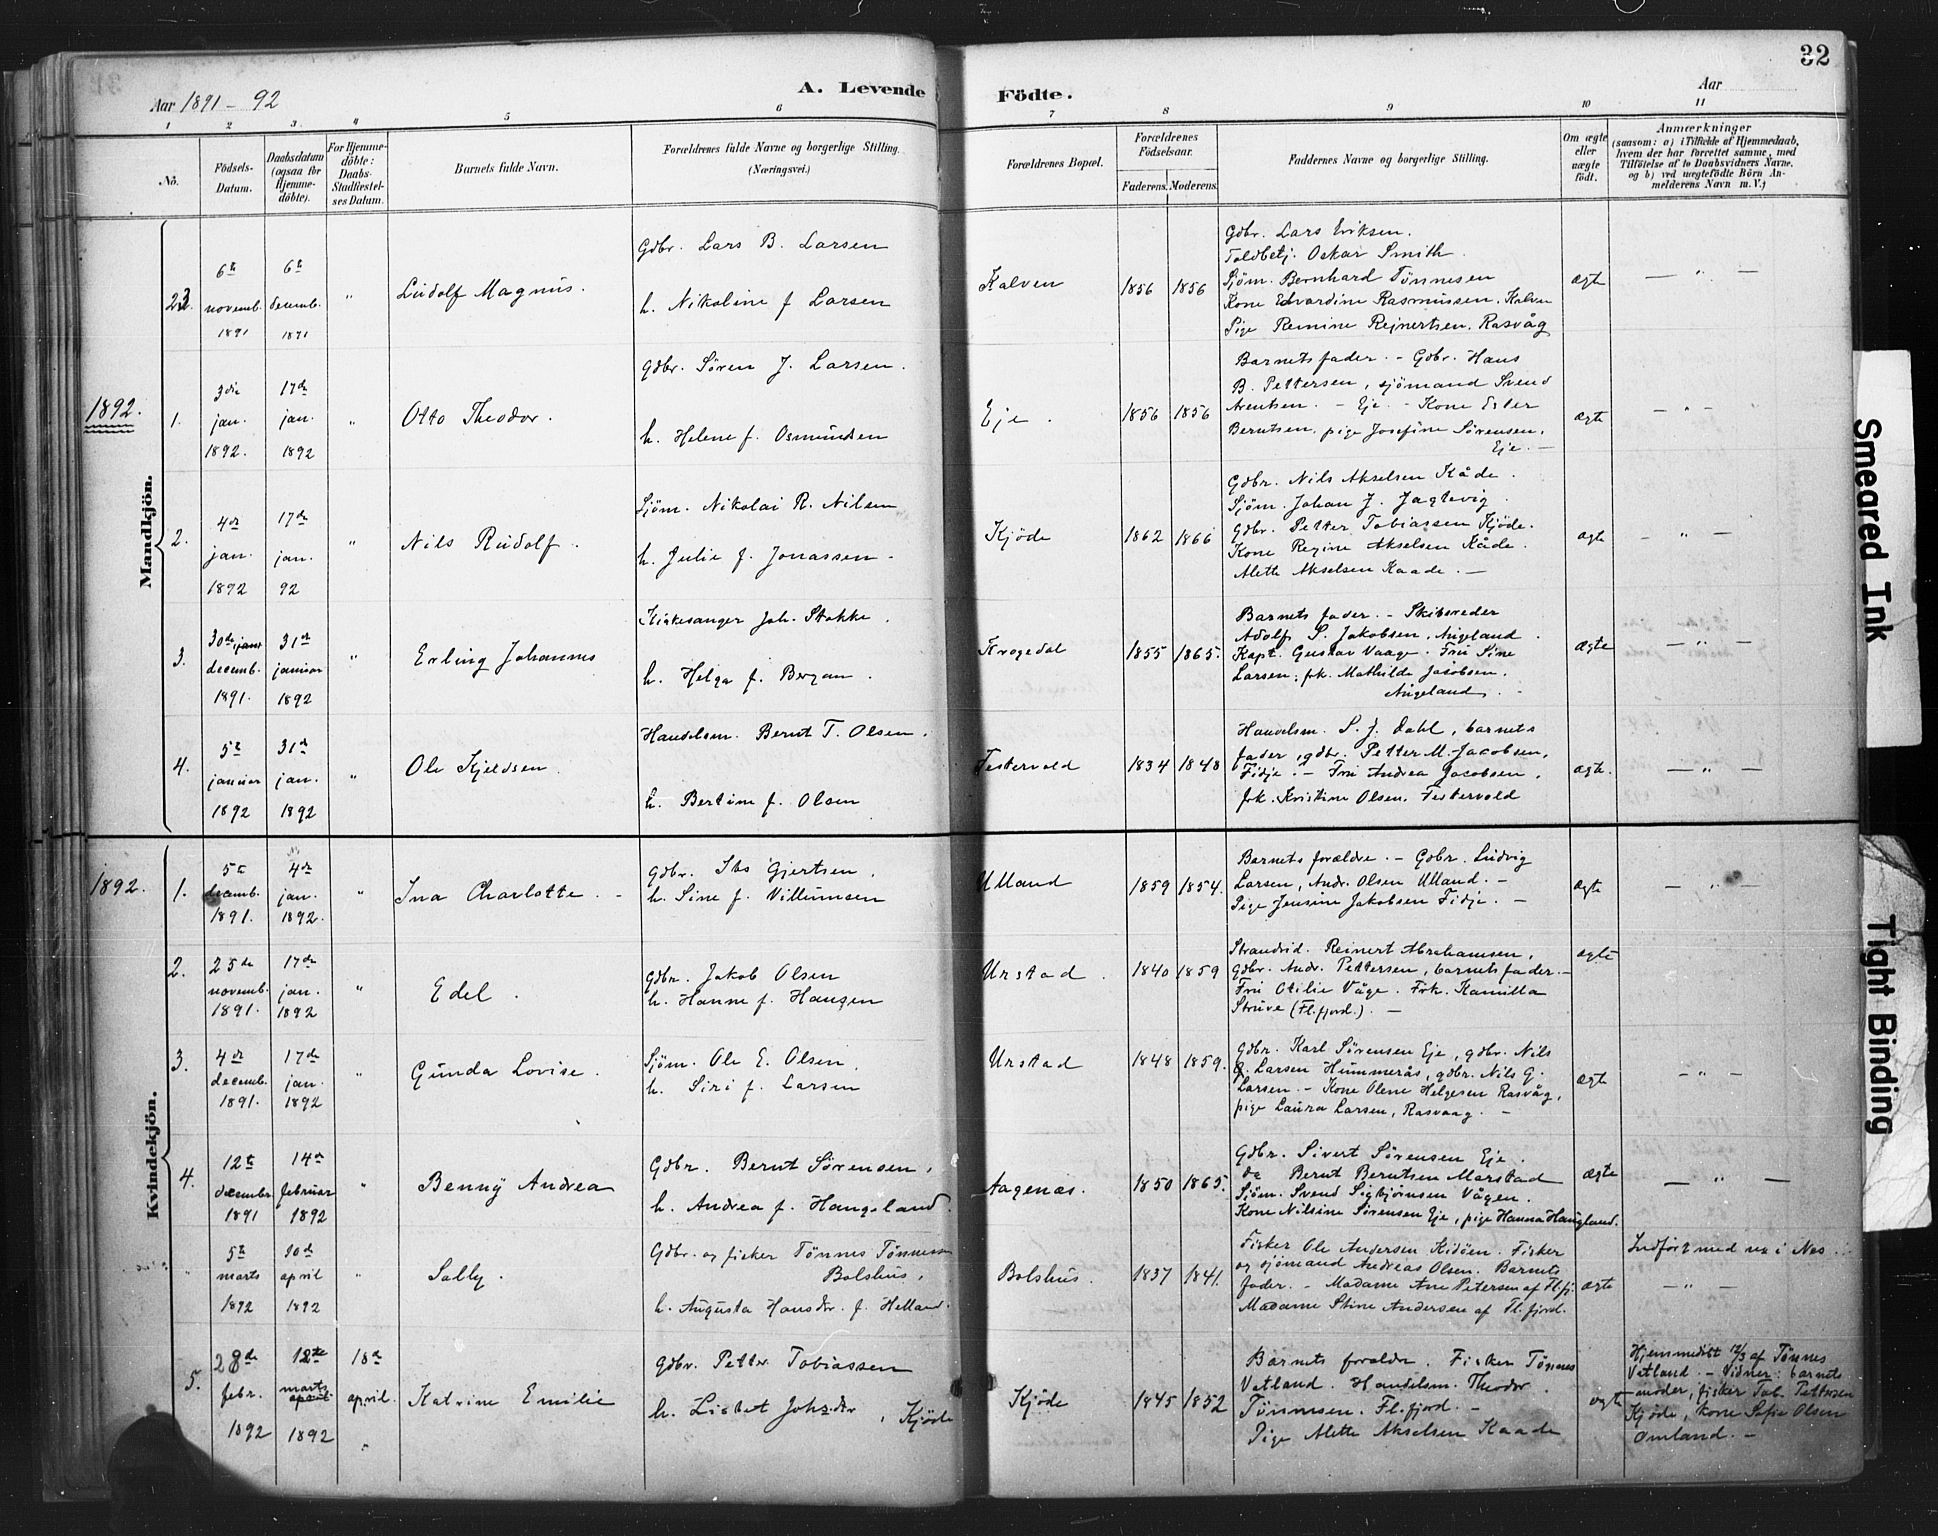 32
Aar 1891 - 92
A. Levende Födte.
Aar
1 2 3 4 5 6 7 8 9 10 11
No.
Födsels-Datum.
Daabsdatum (ogsaa for Hjemme-döbte).
For Hjemme-döbte: Daabs-Stadfæstel-ses Datum.
Barnets fulde Navn.
Forældrenes fulde Navne og borgerlige Stilling.
(Næringsvei.)
Forældrenes Bopæl.
Forældrenes Födselsaar.
Faderens. Moderens.
Faddernes Navne og borgerlige Stilling.
Om ægte eller uægte födt.
Anmærkninger
(saasom: a) i Tilfælde af Hjemmedaab, hvem der har forrettet samme, med Tilföielse af to Daabsvidners Navne, og b) ved uægtefödte Börn An-melderens Navn m. V.)
Mandkjön.
23.
6te novemb. 1891
6te decemb. 1891
"
Ludolf Magnus.
Gdbr. Lars B. Larsen
h. Nikoline f Larsen
Kalven
1856 1856
Gdbr. Lars Eriksen.
Toldbetj. Oskar Smith.
Sjøm. Bernhard Tønnesen
Kone Edvardine Rasmussen, Kalven
Pige Remine Rejnertsen. Rasvåg
ægte
— " —
1892.
1.
3die jan. 1892.
17de jan. 1892
"
Otto Theodor.
Gdbr. Søren J. Larsen.
h. Helene f. Osmundsen
Eje.
1856 1856
Barnets fader. - Gdbr. Hans
B. Pettersen, sjømand Svend
Arentsen. - Eje. - Kone Ester
Berntsen. pige Josefine Sørensen,
Eje. —
ægte
— " —
2.
4de jan. 1892
17de jan. 92
"
Nils Rudolf.
Sjøm. Nikolai R. Nilsen
h. Julie f. Jonassen -
Kjöde
1862 1866
Gdbr. Nils Akselsen Kåde.
Sjøm. Johan J. Jagtevig.
Gdbr. Petter Tobiassen Kjöde.
Kone Regine Akselsen Kåde.
Alette Akselsen Kaade. —
ægte
- " —
3.
30de decemb. 1891.
31te januar 1892
"
Erling Johannes
Kirkesanger Joh. Stokke.
h. Helga f. Bergan.
Krogedal
1855 1865.
Barnets fader. - Skibsreder
Adolf S. Jakobsen, Augeland.
Kapt. Gustav Vaage. Fru Sine
Larsen, frk. Mathilde Jacobsen.
Augeland. -
ægte
— " —
4.
5te januar 1892
31te jan. 1892
"
Ole Kjeldsen
Handelsm. Bernt T. Olsen.
h. Bertine f. Olsen
Festervold
1834 1848
Handelsm. S. J. Dahl, barnets
fader, gdbr. Petter M. Jacobsen,
Fidje. - Fru Andrea Jacobsen,
frk. Kristine Olsen. Festervold
ægte.
— " —
Kvindekjön.
1892.
1.
5te decemb. 1891.
4de jan. 1892.
"
Ina Charlotte. -
Gdbr. Ibs Gjertsen.
h. Sine f. Villumsen
Ulland
1859 1854.
Barnets forældre. - Gdbr. Ludvig
Larsen, Andr. Olsen Ulland. -
Pige Jensine Jakobsen Fidje. -
ægte
— " —
2.
25de novemb. 1891.
17de jan. 1892
"
Edel.
Gdbr. Jakob Olsen
h. Hanne f. Hansen
Urstad.
1840 1859
Strandsid. Reinert Abrahamsen,
gdbr. Andr. Pettersen, barnets fader. -
Fru Otilie Våge. Frk. Kamilla
Strüve (Fl.fjord.). —
ægte
3.
4de decemb. 1891.
17de jan. 1892
"
Gunda Lovise.
Sjøm. Ole E. Olsen,
h. Siri f. Larsen
Urstad
1848 1859.
Gdbr. Karl Sørensen Eje, gdbr. Nils
G. Larsen Hummerås, gdbr. Nils G.
Larsen. - Kone Olene Helgesen Rasvåg,
pige Laura Larsen, Rasvaag. -
ægte
- " -
4.
12te decembr 1891
14de februar 1892
"
Benny Andrea
Gdbr. Bernt Sørensen,
h. Andrea f. Haugeland.
Aagenæs.
1850 1865.
Gdbr. Sivert Sørensen Eje.
do Bernt Berntsen Marstad
Sjøm. Svend Sigbjørnsen Vågen.
Kone Nilsine Sørensen Eje, pige Hanna Haugland.
ægte
— " —
"
5te marts 1892
10de april 1892
"
Sally.
Gdbr. og fisker Tönnes Tönnesen
Bolshus,
h. Augusta Hansdtr. f. Helland.
Bolshus.
1837 1841.
Fisker Ole Andersen Kidöen. Fisker
og sjömand Andreas Olsen. Barnets
fader. - Madame Ane Petersen af Fl.fj.
Madame Stine Andersen af Fl.fjord.
ægte
Indført med no i Nes.
— " —
5.
28de febr. 1892
12te marts 1892
18de april.
"
Katrine Emilie
Gdbr. Petter Tobiassen
h. Lisbet Johsdtr, Kjöde
Kjöde
1845 1852
Barnets foraldre. Fisker Tønnes
Vetland. Handelsm. Theodor.
Tønnesen. Fl.fjord. -
Pige Alette Akselsen Kaade
ægte
Hjemmedöbt 12/3 af Tönnes
Vetland. - Vidner: barnets
moder, fisker Tob. Pettersen
Kjöde, kone Sofie Olsen
Omland. -
Smeared Ink
Tight Binding